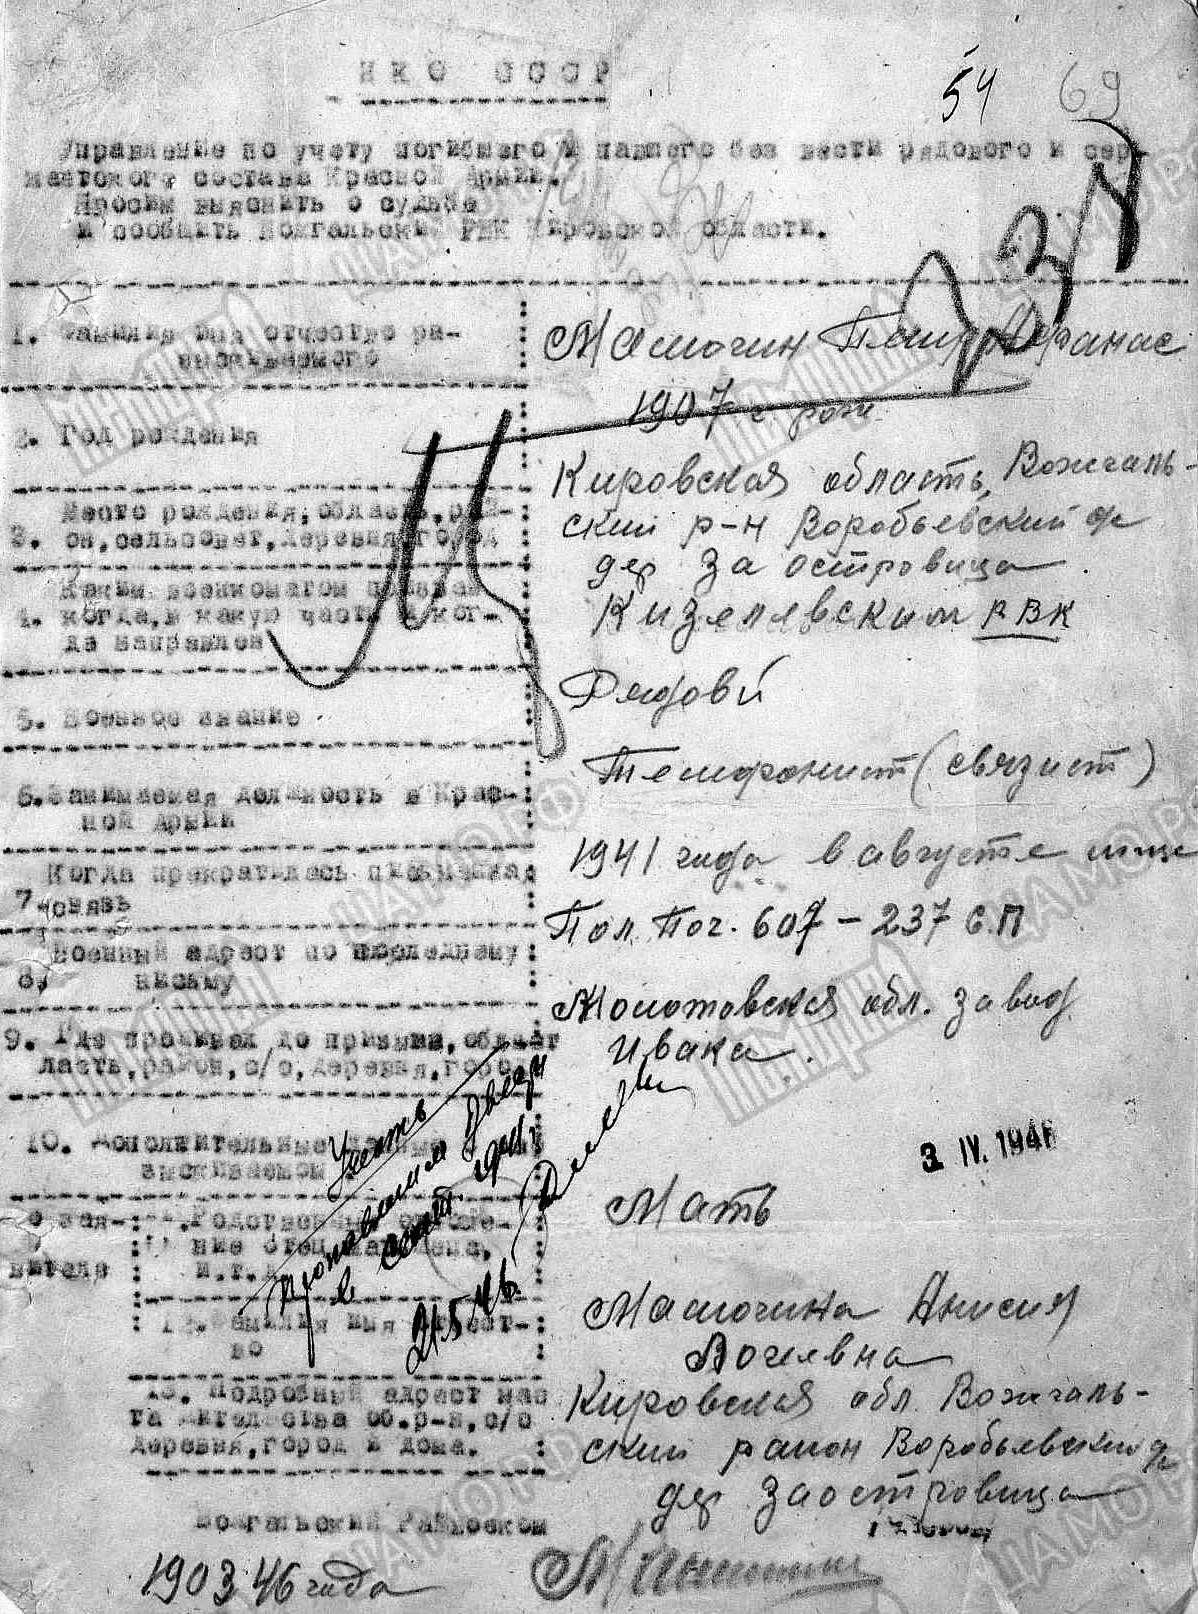 НКО СССР
54 69
Управление по учету погибшего и павшего без вести рядового и сер-
жантского состава Красной Армии.
Просим выяснить о судьбе
и сообщить Вожгальский РВК Кировской области.
1. Фамилия имя отчество ра-
зыскиваемого
Маточин Петр Афанас
2. Год рождения
1907 г. рож
Место рождения, область, рай-
3. он, сельсовет, деревня, город
Кировская область, Вожгаль-
ский р-н Воробьевский
дер Заостровица
Каким военкоматом призван
4. когда, в какую часть и ког-
да направлен
Кизелявским РВК
5. Военное звание
Рядовй
6. Занимаемая должность в Крас-
ной Армии
Телефонист (связист)
Когда прекратилась письменная
7. связь
1941 года в августе м-це
Военный адрест по последнему
8. письму
Пол. Поч. 607 – 237 С.П
9. Где проживал до призыва, област
ласть, район, с/с, деревня, город
Молотовская обл. завод
Ивака.
10. Дополнительные данные
зыскиваемом
3 IV. 1946
Учесть
пропавшим
в сент. 1941 г.
21/5 46.
Родственные отноше-
ние отец мать жена,
и.т.д
Мать
Фамилия имя отчест-
во
Маточина Анисия
13. Подробный адрест мес
та жительства об. р-н, с/с
деревня, город и дома.
Кировская обл. Вожгаль-
ский район Воробьевский
дер Заостровица
Вожгальский Райвоенком
1903 46 года
МЕМОРИАЛ
ЦАМО РФ